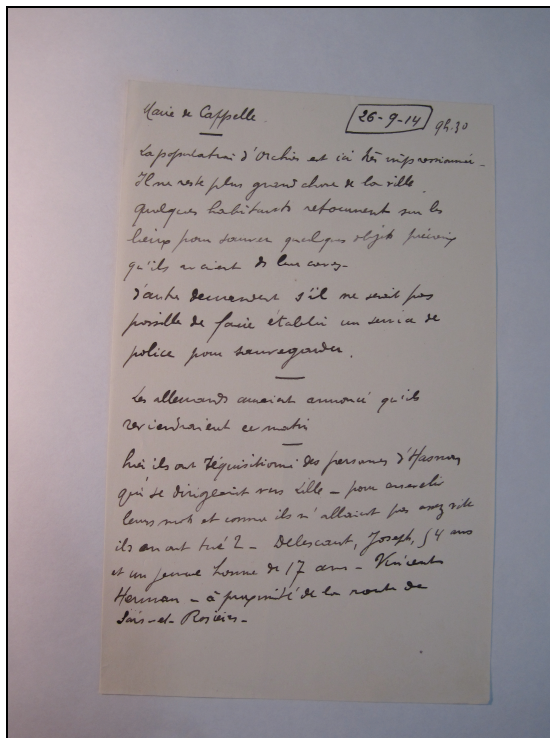 Maire de Cappelle. 26-9-14 9h.30
La population d'Orchies est ici très impressionnée.
Il ne reste plus grand chose de la ville.
Quelques habitants retournent sur les
lieux pour sauver quelques objets précieux
qu'ils avaient ds leur caves.
d'autres demandent s'il ne serait pas
possible de faire établir un service de
police pour sauvegarder.
Les allemands auraient annoncé qu'ils
reviendraient ce matin
hier ils ont réquisitionné des personnes d'Hasnon
qui se dirigeaient vers Lille – pour
leurs et comme ils n'allaient pas assez vite
ils en ont tué 2 – Delescaut, Joseph, 54 ans
et un jeune homme de 17 ans – Vincent
Herman – à proximité de la route de
Sars-et-Rosières –